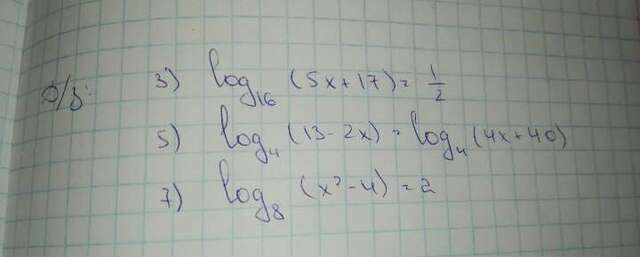 Д/з: 3) log₁₆ (5x+17) = 1/2
5) log₄ (13-2x) = log₄ (4x+40)
7) log₈ (x²-4) = 2